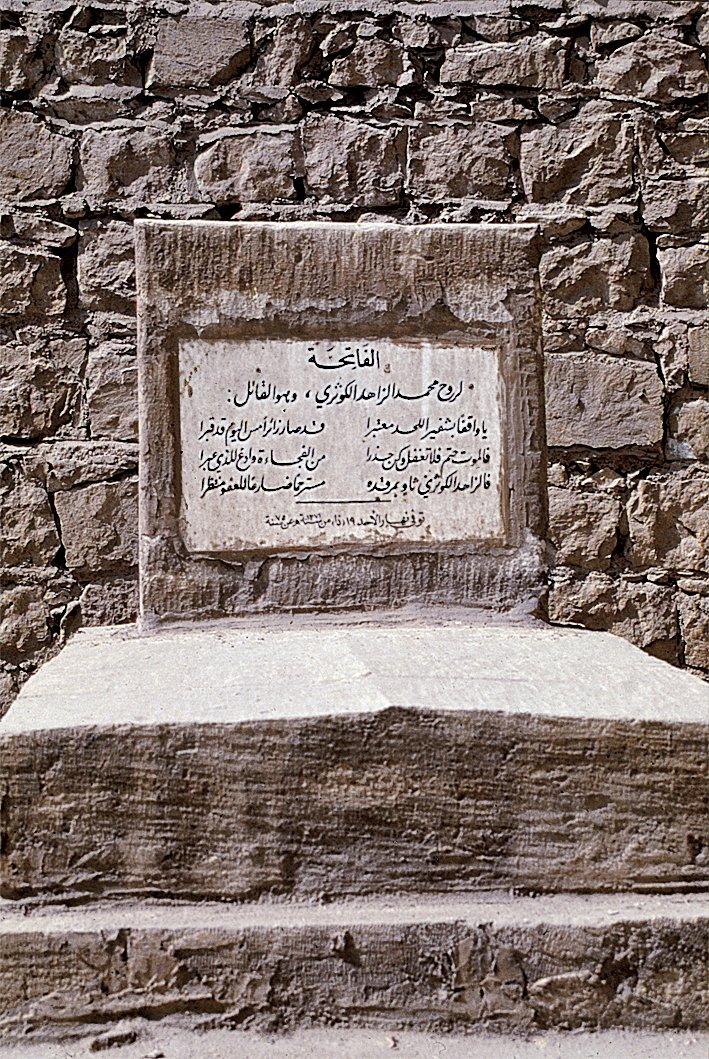 الفَاتِحَة
لروح محمد الزاهد الكوثري ، وهو القائل :
يا واقفا بشفير اللحد معتبرا قد صار زائر أمس اليوم قد قبرا
فالموت حتم فلا تغفل وكن حذرا من الفجاءة وادع للذي عبرا
فالزاهد الكوثري ثاو بمرقده مسترحما ضارعا للعفو منتظرا
توفي نهار الأحد ١٩ ذا من سنة ١٣٧١ هـ عن ٧٥ سنة